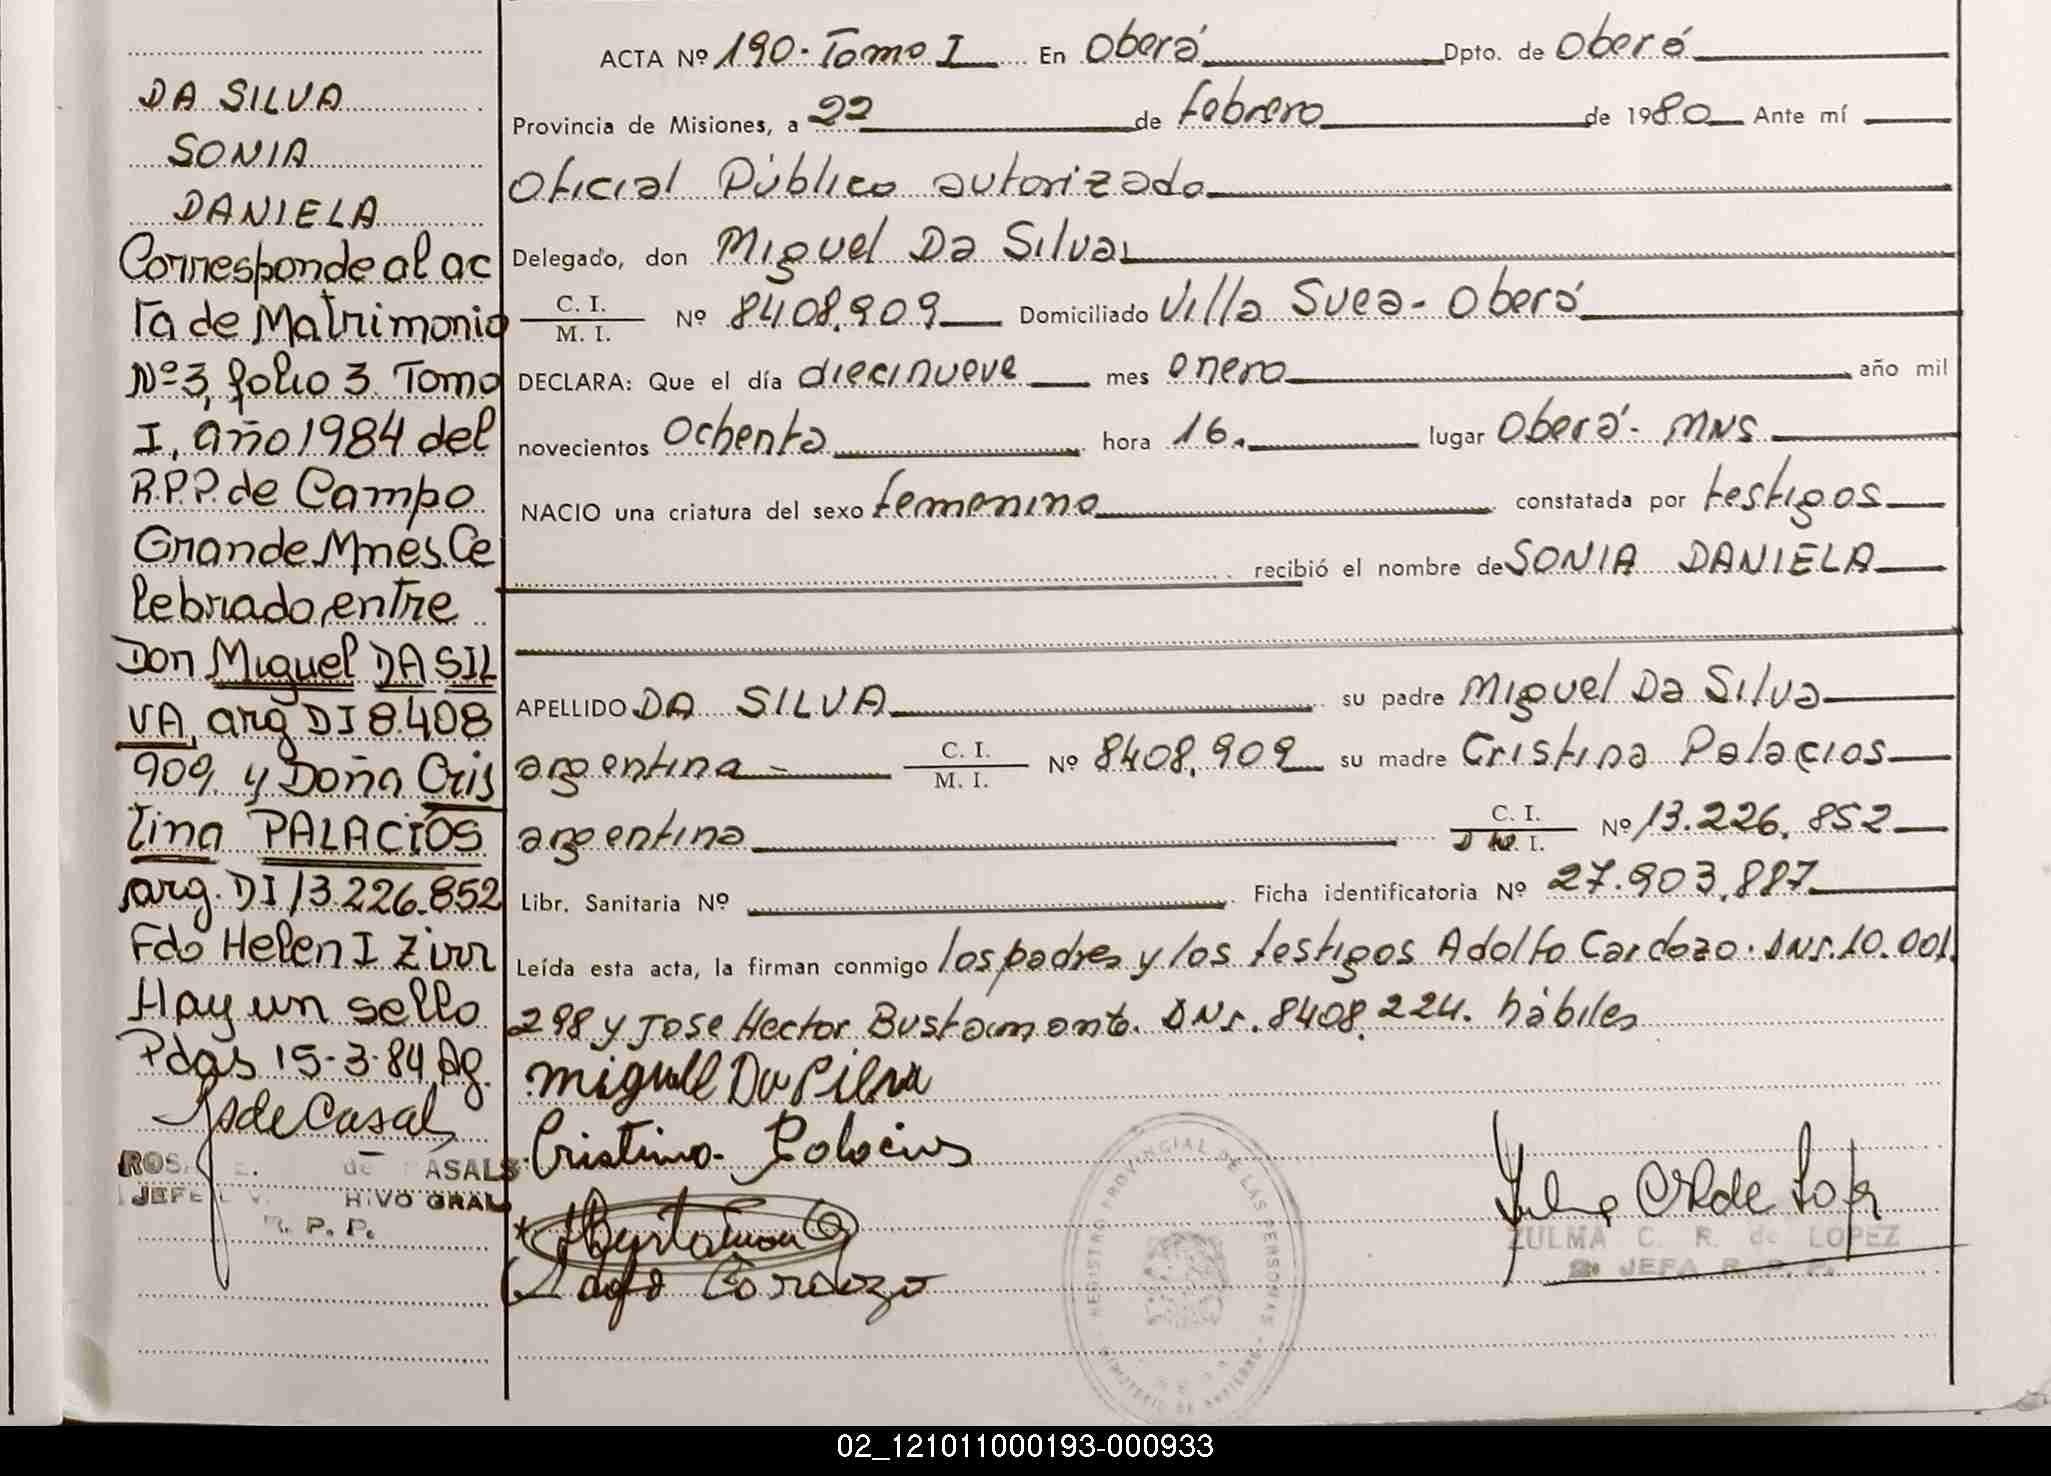 DA SILVA
SONIA
DANIELA
Corresponde al ac
ta de Matrimonio
Nº 3, folio 3. Tomo
I, año 1984 del
R.P.P. de Campo
Grande Mnes. Ce
lebrado, entre
Don Miguel DA SIL
VA, arg DI 8.408
909, y Doña Cris
tina PALACIOS
arg. DI 13.226.852
Fdo Helen I Zirr
Hay un sello
Pdas 15-3-84 Ag.
de Casal
ROS. de CASALS
JEFE HIVO GRAL
R. P. P.
ACTA Nº 190 - Tomo I En Oberá Dpto. de Oberá
Provincia de Misiones, a 22 de febrero de 1980 Ante mí
Oficial Público autorizado
Delegado, don Miguel Da Silva
C. I.
M. I. Nº 8408.909 Domiciliado Villa Svea - Oberá
DECLARA: Que el día diecinueve mes enero año mil
novecientos Ochenta hora 16. lugar Oberá - MNS
NACIO una criatura del sexo femenino constatada por testigos
recibió el nombre de SONIA DANIELA
APELLIDO DA SILVA su padre Miguel Da Silva
argentina - C. I.
M. I. Nº 8408.909 su madre Cristina Palacios
argentina C. I.
D M. I. Nº 13.226.852
Libr. Sanitaria Nº Ficha identificatoria Nº 27.903.887
Leída esta acta, la firman conmigo los padres y los testigos Adolfo Cardozo. DNI. 10.001.
298 y Jose Hector Bustamante. DNI. 8408.224. hábiles
Miguel Da Silva
Cristina Palacios
Adolfo Cardozo
REGISTRO PROVINCIAL DE LAS PERSONAS
MINISTERIO DE GOBIERNO
ZULMA C. R. de LOPEZ
2ª JEFA R. P. P.
02_121011000193-000933